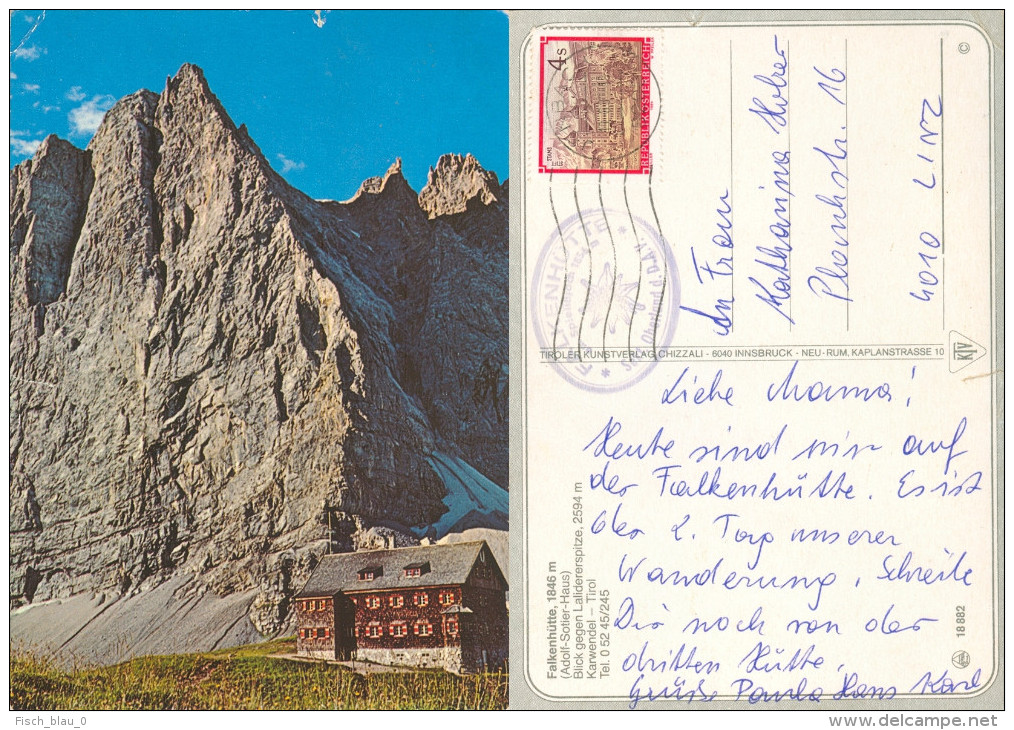 4 s
REPUBLIK ÖSTERREICH
STAMS
FALKENHÜTTE
Sekt. Oberland d. D.A.V.
An Frau
Katharina Hofrer
4010 LINZ
TIROLER KUNSTVERLAG CHIZZALI - 6040 INNSBRUCK - NEU-RUM, KAPLANSTRASSE 10
KTV
©
Liebe Mama!
Heute sind wir auf
der Falkenhütte. Es ist
der 2. Tag unserer
Wanderung. Schreibe
Dir noch von der
dritten Hütte.
Grüße Paula Hans Karl
Falkenhütte, 1846 m
(Adolf-Sotier-Haus)
Blick gegen Lalidererspitze, 2594 m
Karwendel – Tirol
Tel. 0 52 45/245
18 882
Fisch_blau_0
www.delcampe.net